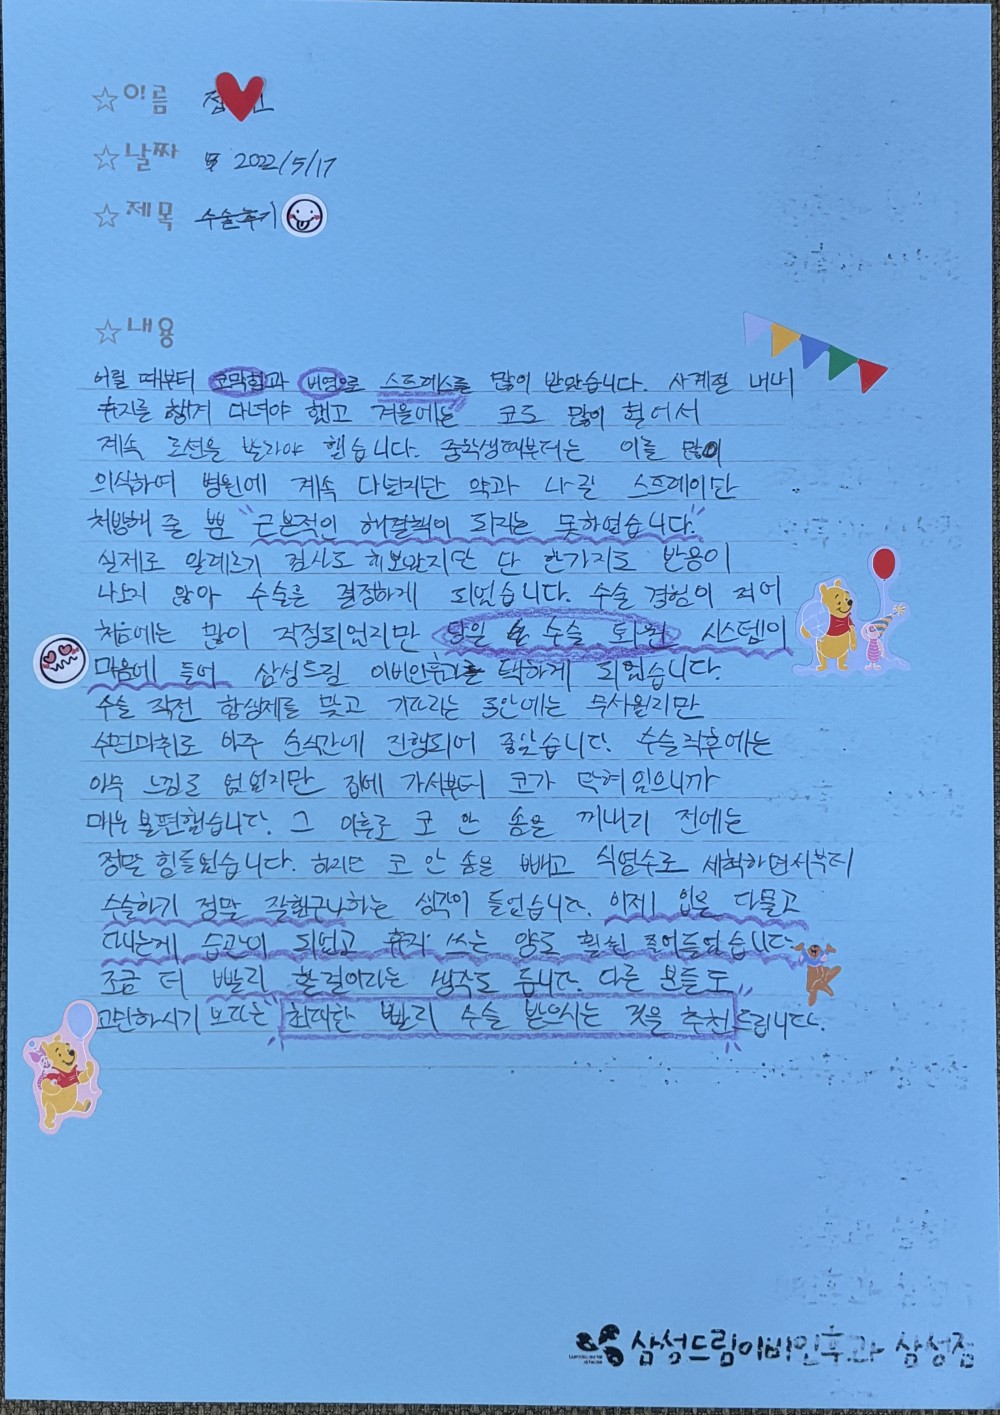 ☆이름
☆날짜 2022/5/17
☆제목 수술후기
☆내용
어릴 때부터 코막힘과 비염으로 스트레스를 많이 받았습니다. 사계절 내내
휴지를 챙겨 다녀야 했고 겨울에는 코도 많이 헐어서
계속 로션을 발라야 했습니다. 중학생때부터는 이를 많이
의식하여 병원에 계속 다녔지만 약과 나잘 스프레이만
처방해 줄 뿐 "근본적인 해결책이 되지는 못하였습니다."
실제로 알레르기 검사도 해보았지만 단 한가지도 반응이
나오지 않아 수술을 결정하게 되었습니다. 수술 경험이 적어
처음에는 많이 걱정되었지만 당일 수술 퇴원 시스템이
마음에 들어 삼성드림 이비인후과를 택하게 되었습니다.
수술 직전 항생제를 맞고 기다리는 동안에는 무서웠지만
수면마취로 아주 순식간에 진행되어 좋았습니다. 수술직후에는
아무 느낌도 없었지만 집에 가서부터 코가 막혀있으니까
매우 불편했습니다. 그 이후로 코 안 솜을 꺼내기 전에는
정말 힘들었습니다. 하지만 코 안 솜을 빼고 식염수로 세척하면서부터
수술하기 정말 잘했구나하는 생각이 들었습니다. 이제 입을 다물고
다니는게 습관이 되었고 휴지 쓰는 양도 훨씬 줄어들었습니다.
조금 더 빨리 할걸이라는 생각도 듭니다. 다른 분들도
고민하시기 보다는 "최대한 빨리 수술 받으시는 것을 추천"드립니다.
삼성드림이비인후과 삼성점